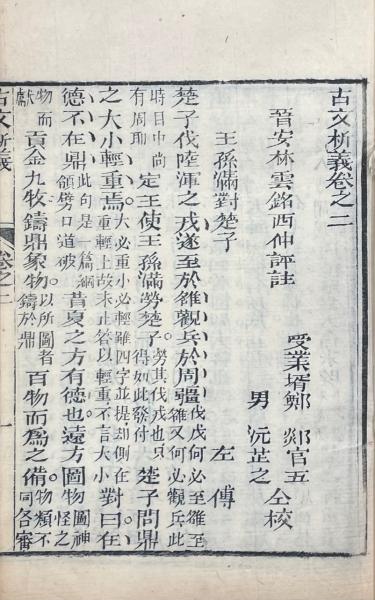 古文析義卷之二
晉安林雲銘西仲評註
受業壻鄭郯官五
男沅芷之
仝校
王孫滿對楚子
左傳
楚子伐陸渾之戎遂至於雒觀兵於周疆伐戎何必至雒至雒又何必觀兵此
時目中尚有周耶定王使王孫滿勞楚子勞其伐戎也只得如此發付楚子問鼎
之大小輕重焉大必重小必輕雖四字並提却側在重輕上故末止答以輕重不言大小對曰在
德不在鼎此句是一篇綱領劈口道破昔夏之方有德也遠方圖物圖神怪之
物而獻貢金九牧鑄鼎象物以所圖者鑄於鼎百物而爲之備物類不同各審
古文析義
卷之二
一